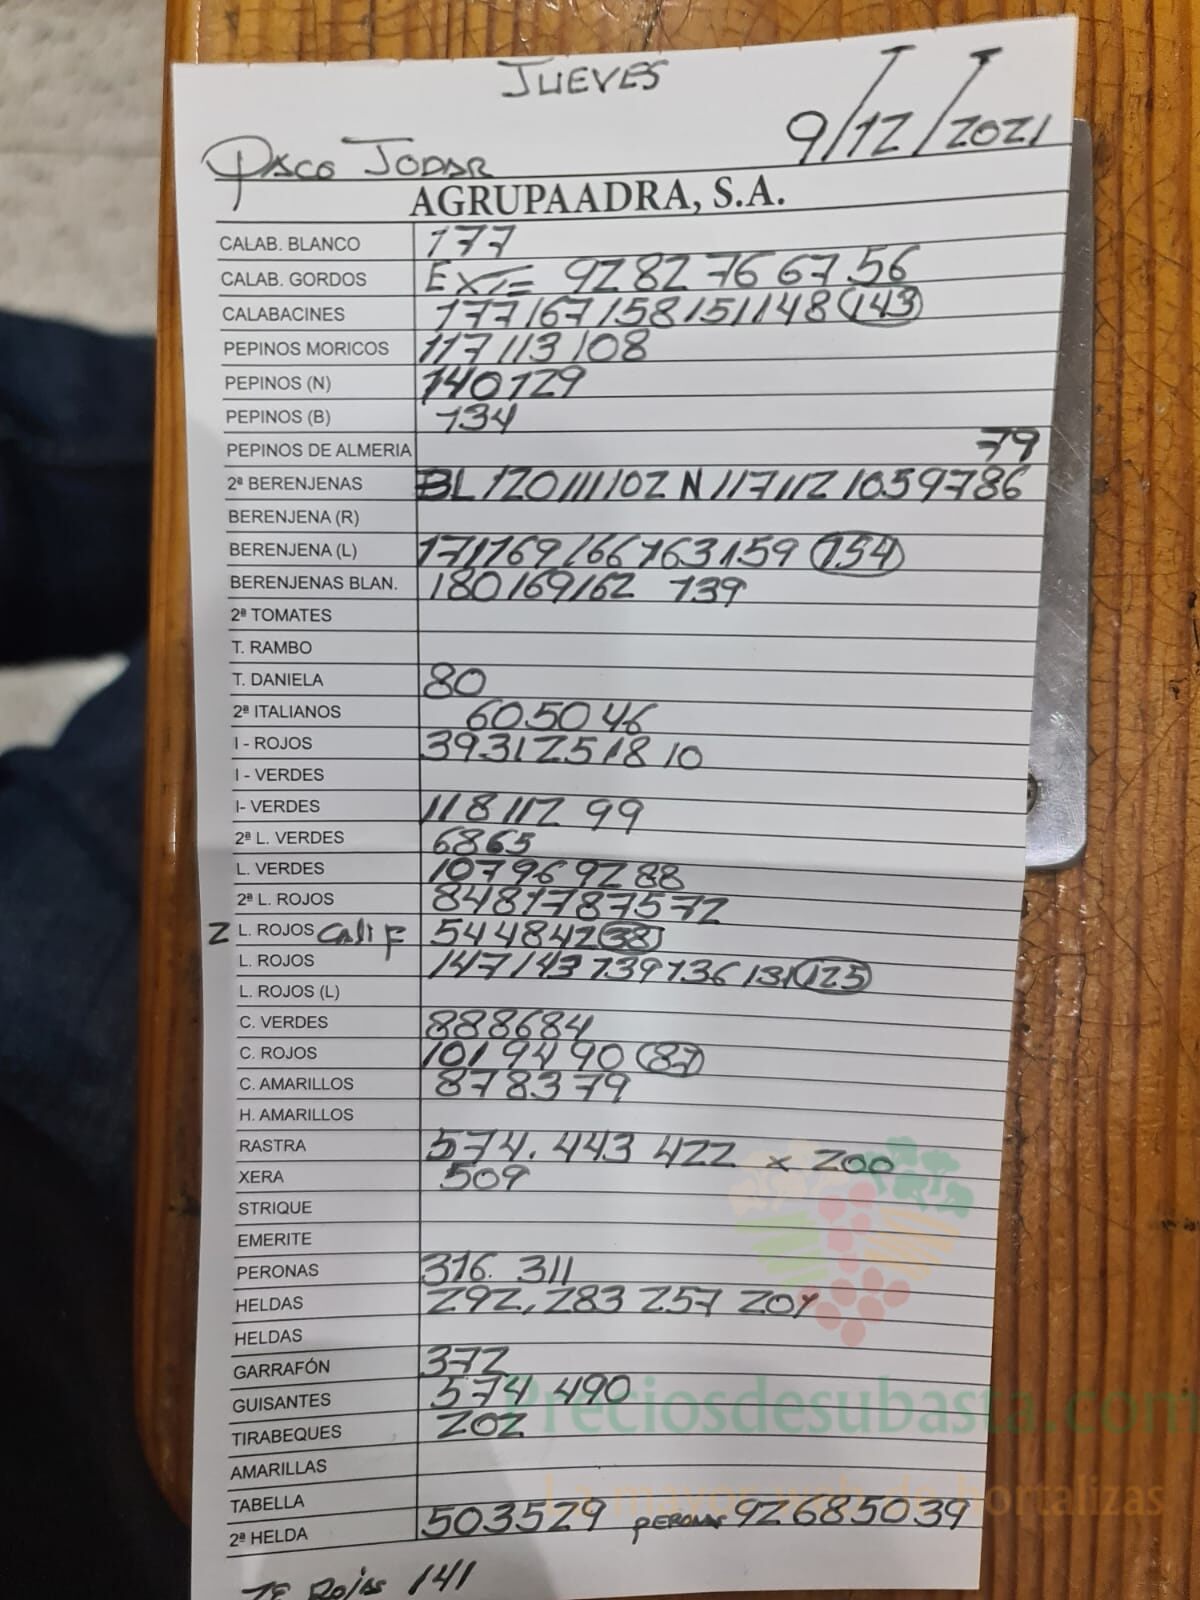 JUEVES
9/12/2021
PACO JODAR
AGRUPAADRA, S.A.
CALAB. BLANCO 177
CALAB. GORDOS EXT= 92 82 76 67 56
CALABACINES 177 167 158 151 148 143
PEPINOS MORICOS 117 113 108
PEPINOS (N) 140 129
PEPINOS (B) 134
PEPINOS DE ALMERIA 79
2ª BERENJENAS BL 120 111 102 N 117 112 105 97 86
BERENJENA (R)
BERENJENA (L) 171 169 166 163 159 154
BERENJENAS BLAN. 180 169 162 139
2ª TOMATES
T. RAMBO
T. DANIELA 80
2ª ITALIANOS 60 50 46
I - ROJOS 39 31 25 18 10
I - VERDES
I- VERDES 118 112 99
2ª L. VERDES 68 65
L. VERDES 107 96 92 88
2ª L. ROJOS 84 81 78 75 72
2 L. ROJOS CALIF 54 48 42 38
L. ROJOS 147 143 139 136 131 125
L. ROJOS (L)
C. VERDES 88 86 84
C. ROJOS 101 94 90 87
C. AMARILLOS 87 83 79
H. AMARILLOS
RASTRA 574. 443 422 x 200
XERA 509
STRIQUE
EMERITE
PERONAS 316. 311
HELDAS 292, 283 257 201
HELDAS
GARRAFÓN 372
GUISANTES 574 490
TIRABEQUES 202
AMARILLAS
TABELLA
2ª HELDA 50 35 29 PERONAS 92 68 50 39
Rojas 141
Preciosdesubasta.com
La mayor web de hortalizas